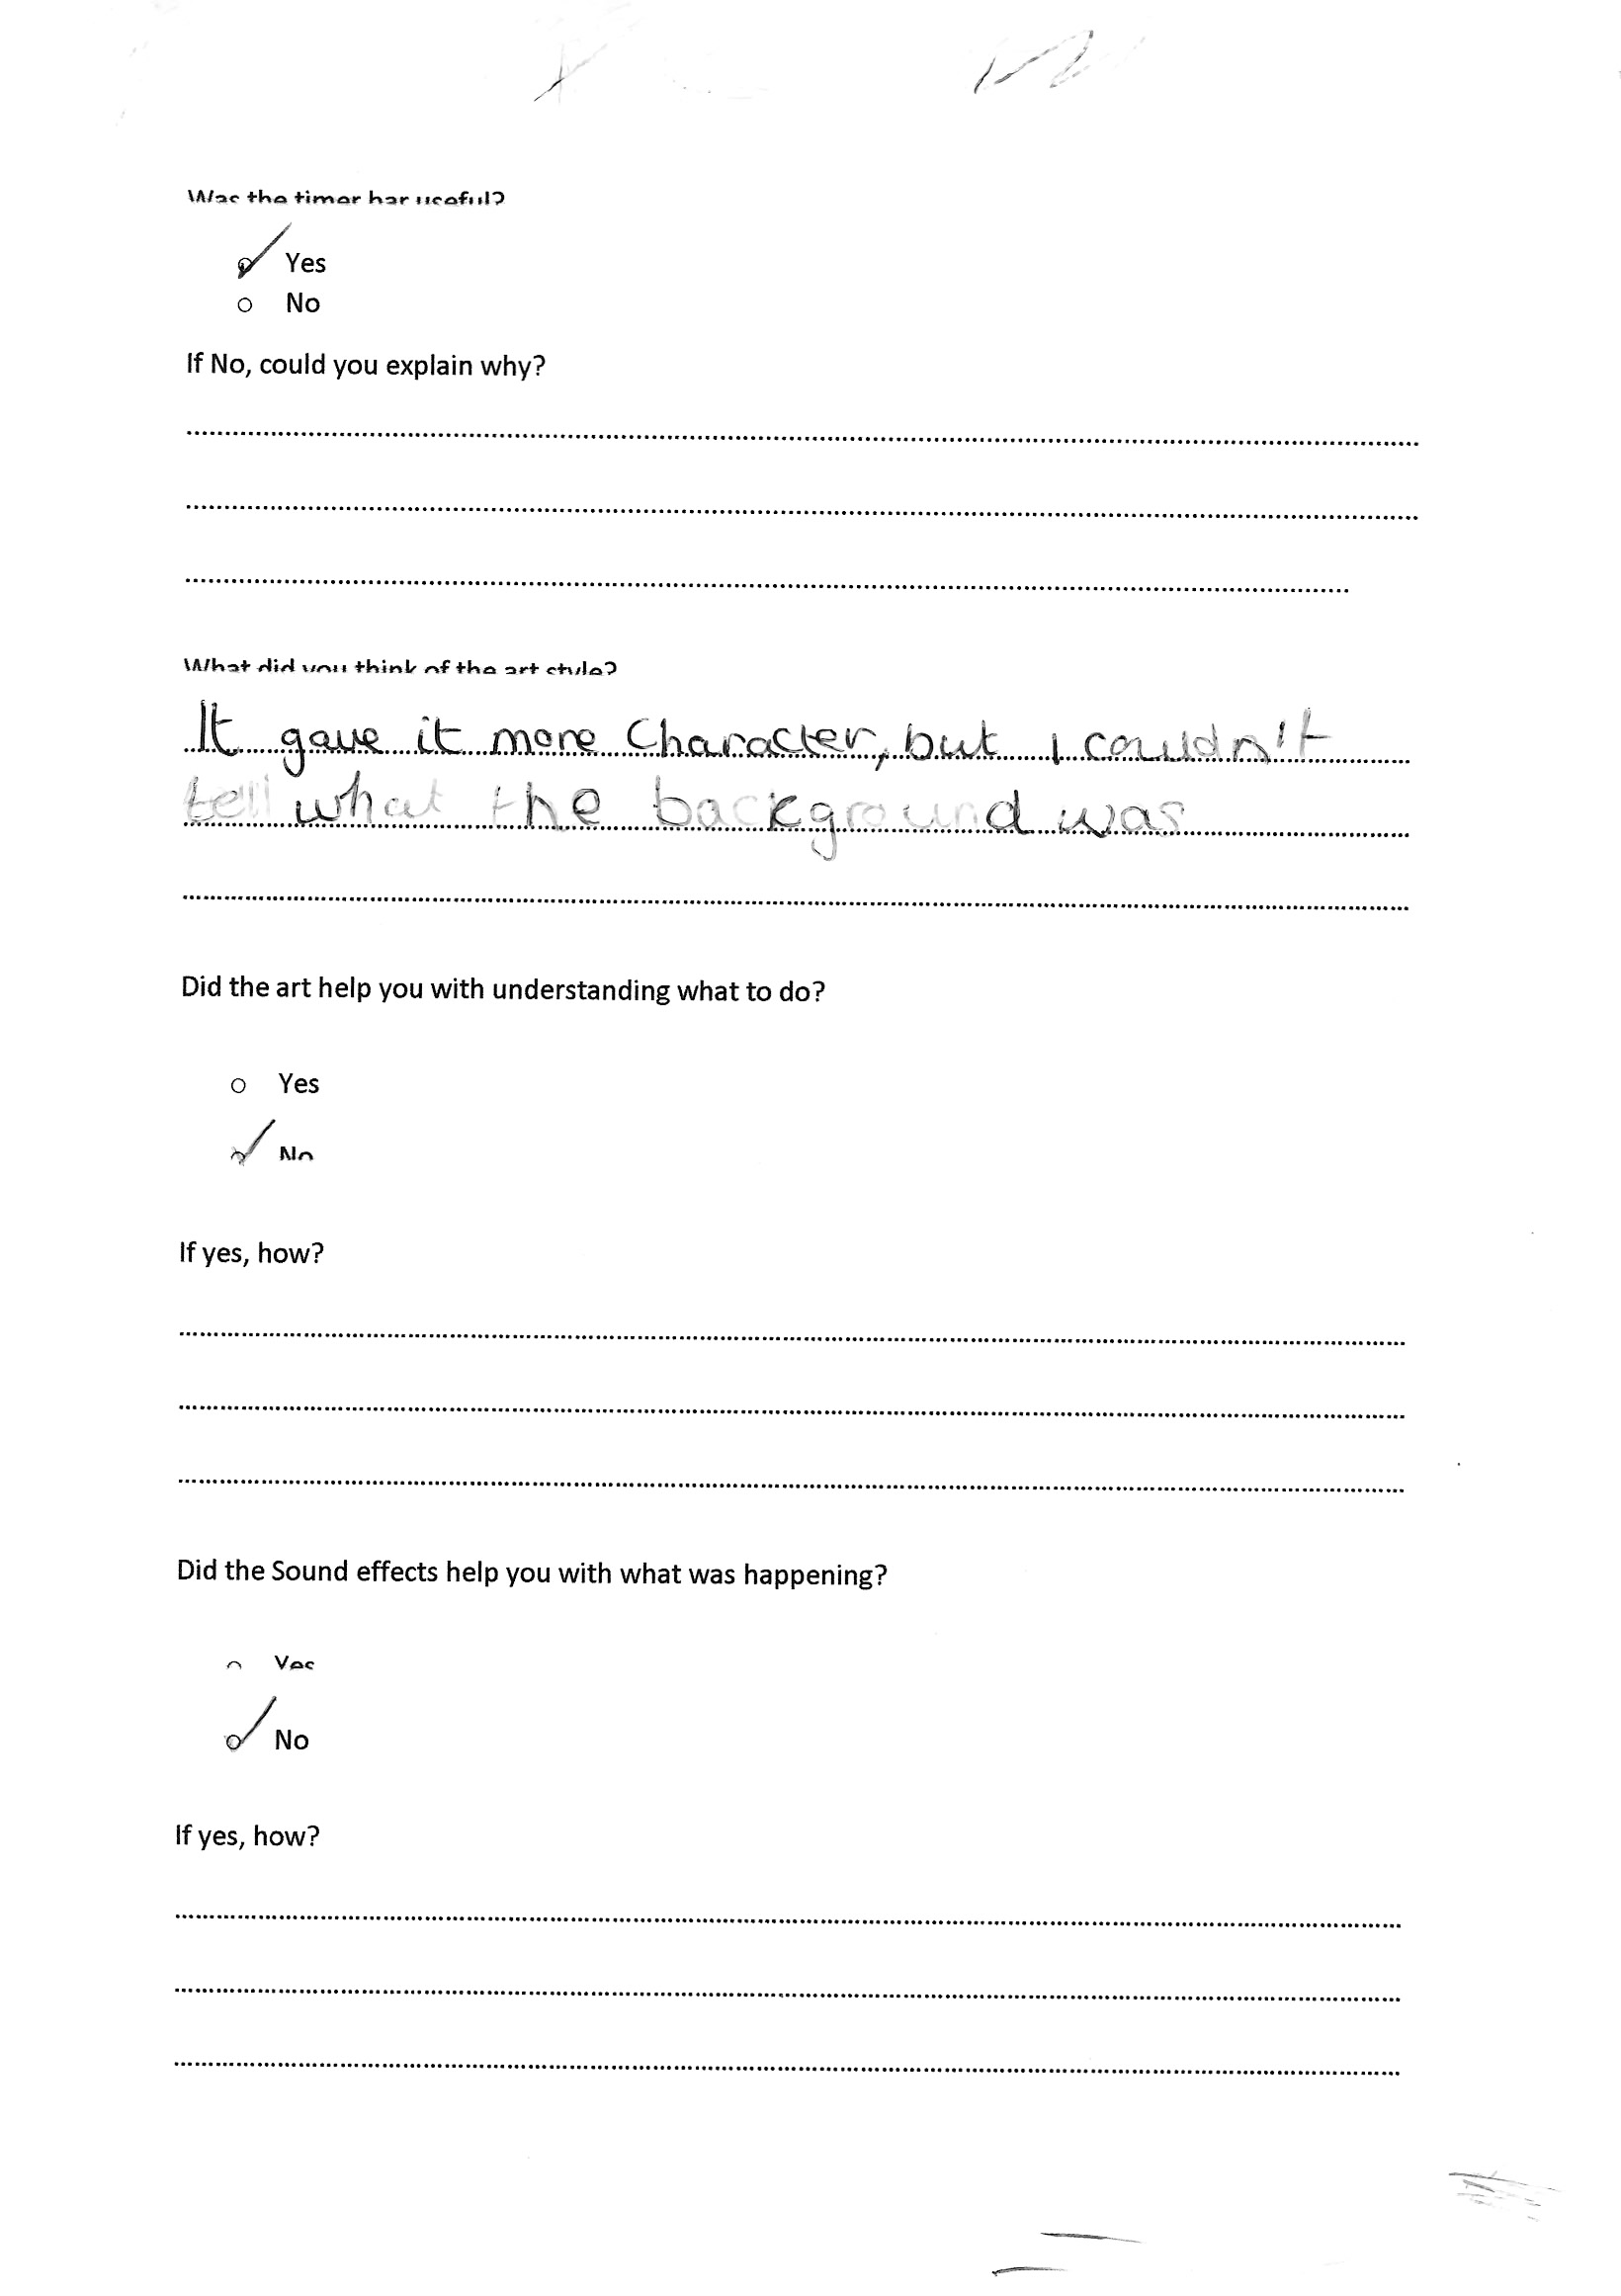 Was the timer bar useful?
Yes
No
If No, could you explain why?
What did you think of the art style?
It gave it more Character, but I couldn't
tell what the background was
Did the art help you with understanding what to do?
Yes
No
If yes, how?
Did the Sound effects help you with what was happening?
Yes
No
If yes, how?